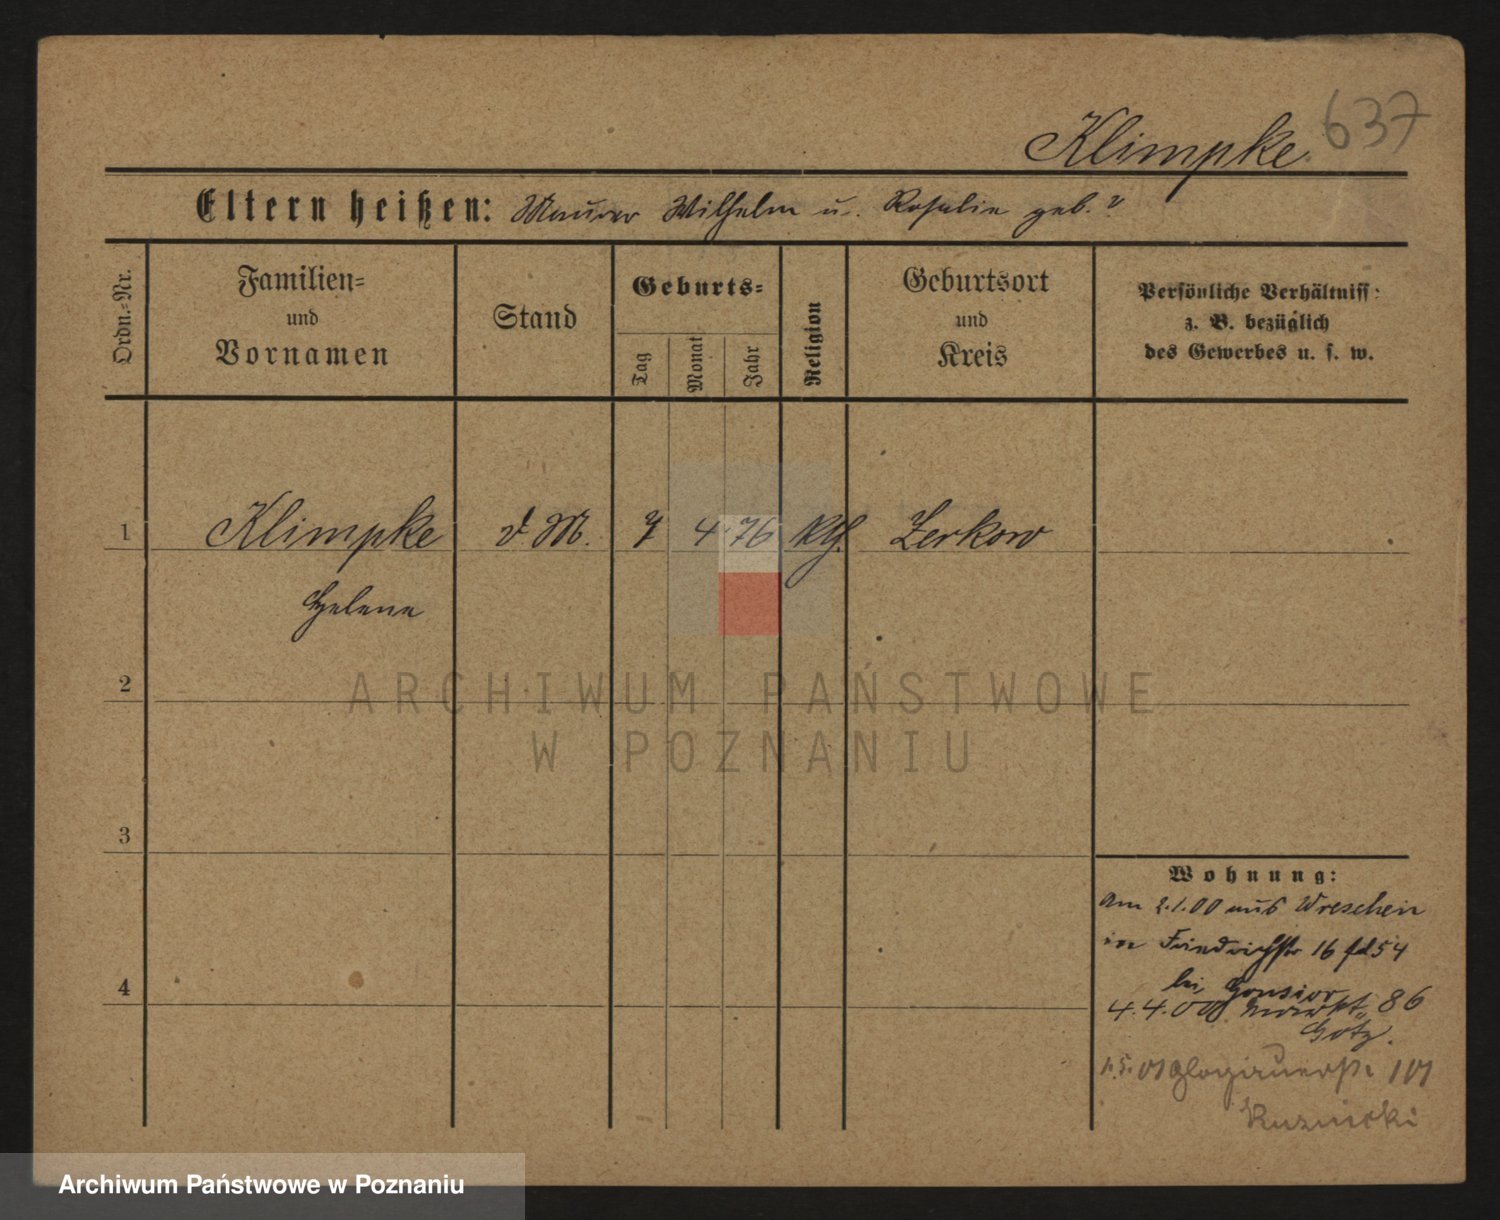 Klimpke 637
Eltern heißen: Maurer Wilhelm u. Rosalie geb. ?
Ordn.-Nr.
Familien-
und
Vornamen
Stand
Geburts-
Tag
Monat
Jahr
Religion
Geburtsort
und
Kreis
Persönliche Verhältniss:
z. B. bezüglich
des Gewerbes u. s. w.
1 Klimpke d M. 7 4 76 kth. Zerkow
Helene
2
3
4
Wohnung:
Am 2.1.00 aus Wreschen
in Friedrichstr 16 54
bei Gonsior
4.4.00 Markt 86
Götz.
01 Glogauerstr 101
Kuznicki
ARCHIWUM PAŃSTWOWE
W POZNANIU
Archiwum Państwowe w Poznaniu